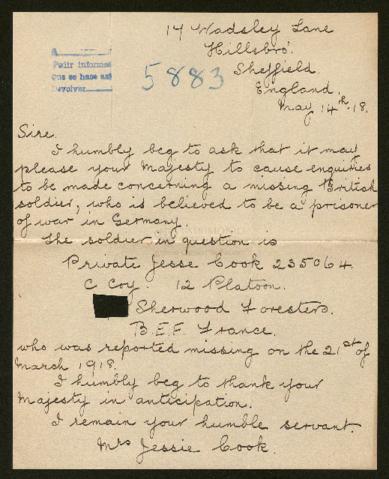 14 Wadsley Lane
Hillsbro'.
Sheffield.
England.
May 14th. 18.
Pedir informes
5883
Sire.
I humbly beg to ask that it may
please your Majesty to cause enquiries
to be made concerning a missing British
soldier, who is believed to be a prisoner
of war in Germany.
The soldier in question is
Private Jesse Cook 235064.
C Coy. 12 Platoon.
Sherwood Foresters.
B.E.F. France.
who was reported missing on the 21st of
March 1918.
I humbly beg to thank your
Majesty in anticipation.
I remain your humble servant.
Mrs Jessie Cook.